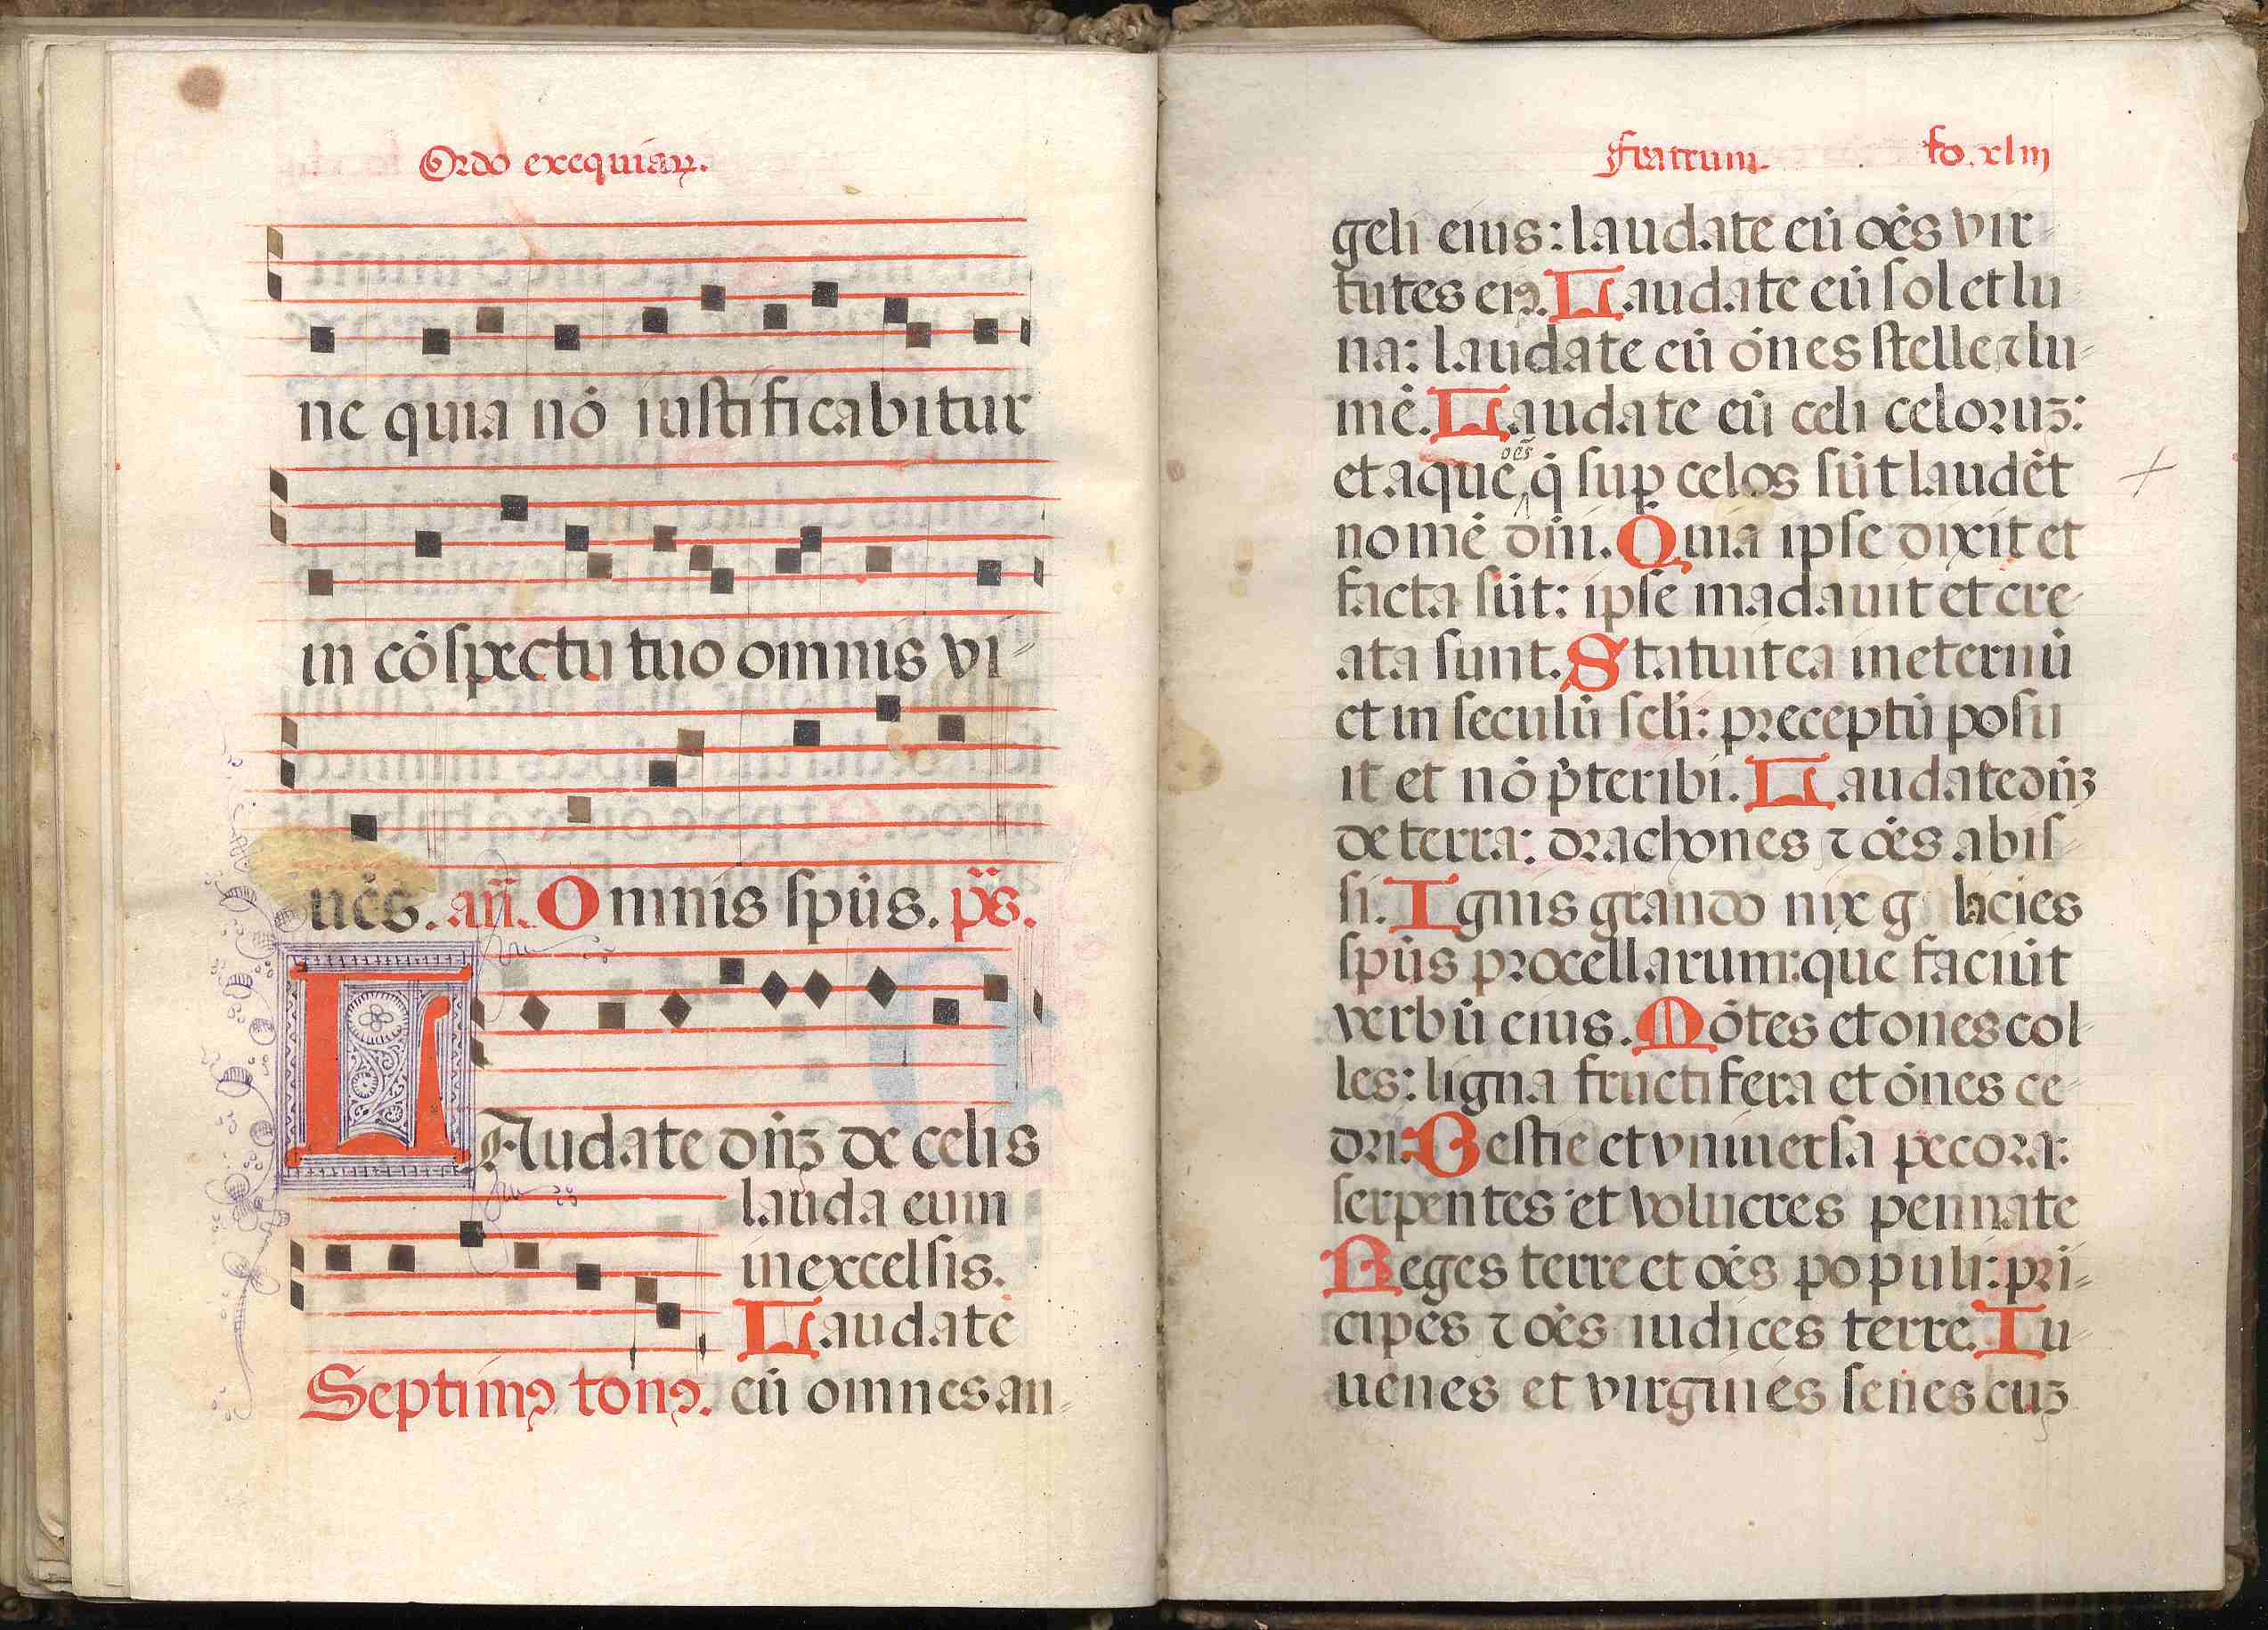 Ordo exequiaꝝ.
ne quia nō iustificabitur
in cōspectu tuo omnis vi-
uēs. añ. Omnis spūs. p̄s.
LAudate dn̄ꝫ de celis
lauda eum
in excelsis.
Laudate
Septimꝰ tonꝰ. eū omnes an-
Fratrum. fo. xliii
geli eius: laudate eū oēs vir-
tutes eiꝰ. Laudate eū sol et lu
na: laudate eū ōnes stelle ⁊ lu-
mē. Laudate eū celi celoꝛuꝫ:
oēs
et aque q̄ suꝑ celos sūt laudēt
nomē dn̄i. Quia ipse dixit et
facta sūt: ipse madauit et cre-
ata sunt. Statuit ea in eternū
et in seculū scl̄i: preceptū posu
it et nō p̄teribi. Laudate dn̄ꝫ
de terra: drachones ⁊ oēs abis-
si. Ignis grando nix g lacies
spūs procellarum: que faciūt
verbū eius. Mōtes et ones col-
les: ligna fructifera et ōnes ce-
dri. Bestie et vniuersa pecora:
serpentes et volucres pennate
Reges terre et oēs populi: pri-
cipes ⁊ oēs iudices terre. Iu-
uenes et virgines senes cuꝫ